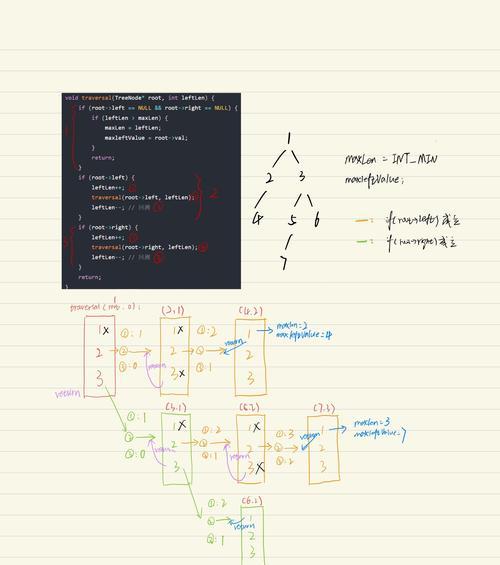 void traversal(TreeNode* root, int leftLen) {
if (root->left == NULL && root->right == NULL) {
if (leftLen > maxLen) {
maxLen = leftLen;
maxleftValue = root->val;
}
return;
}
if (root->left) {
leftLen++; ①
traversal(root->left, leftLen); ②
leftLen--; // 回溯 ③
}
2
if (root->right) {
leftLen++; ①
traversal(root->right, leftLen); ②
leftLen--; // 回溯 ③
}
return;
}
1
2 3
4 5 6
7
maxLen = INT_MIN
maxleftValue;
—: if(root->left) 成立
—: if(root->right) 成立
traversal(root, 0);
(2,1)
(4,2)
1x ①:1 1x ①:2 1 maxLen=2
maxleftValue=4
2 ② 2 ② return 2
3 ③:0 return 3x ③:1 3
return
①:1
②
③:0
(3,1)
1x ①:2 1x ①:3 1 maxLen=3
maxleftValue=7
2 ② 2 ② return 2
3 ③:1 return 3x ③:2 3
(7,3)
①:2
②
(6,2)
return
1
2
3